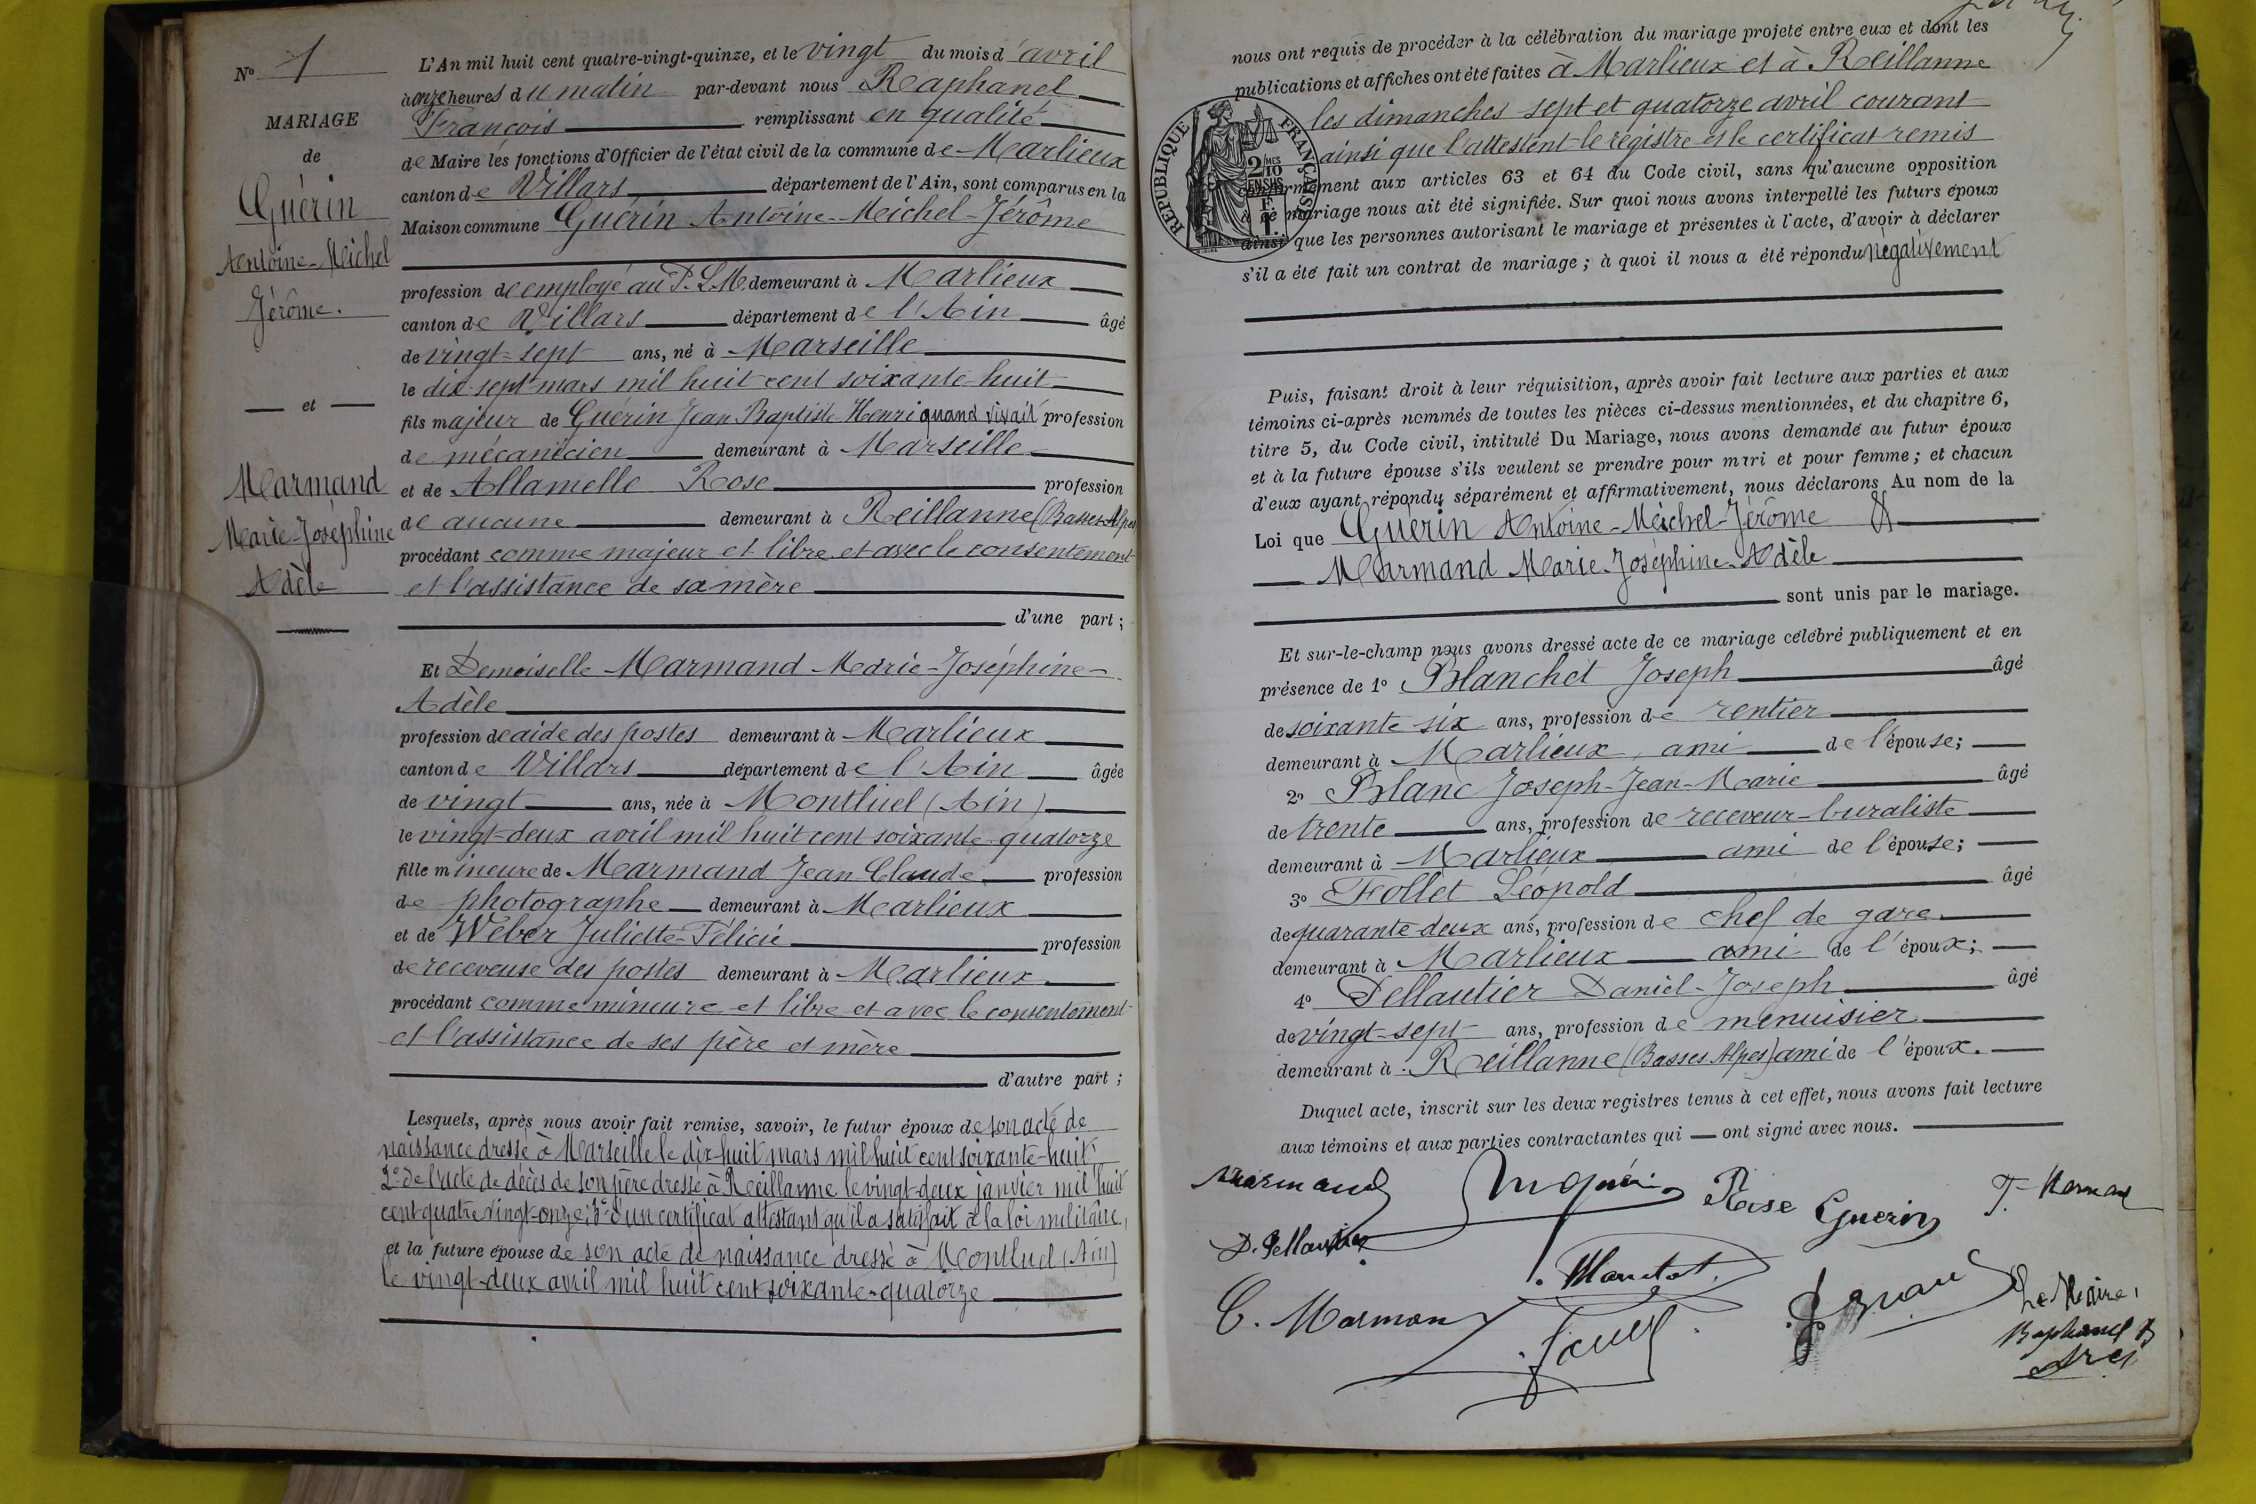 N° 1
MARIAGE
de
Guérin
Antoine-Michel
Jérôme.
et
Marmand
Marie-Joséphine
Adèle
L'An mil huit cent quatre-vingt-quinze, et le vingt du mois d'avril
à onze heures du matin par-devant nous Raphanel
François remplissant en qualité
de Maire les fonctions d'Officier de l'état civil de la commune de Marlieux
canton de Villars département de l'Ain, sont comparus en la
Maison commune Guérin Antoine-Michel-Jérôme
profession de employé au P.L.M. demeurant à Marlieux
canton de Villars département de l'Ain âgé
de vingt-sept ans, né à Marseille
le dix-sept mars mil huit cent soixante-huit
fils majeur de Guérin Jean Baptiste Henri quand vivait profession
de mécanicien demeurant à Marseille
et de Allamelle Rose profession
de aucune demeurant à Reillanne (Basses-Alpes
procédant comme majeur et libre et avec le consentement
et l'assistance de sa mère
d'une part ;
Et Demoiselle Marmand Marie-Joséphine-
Adèle
profession de aide des postes demeurant à Marlieux
canton de Villars département de l'Ain âgée
de vingt ans, née à Montluel (Ain)
le vingt-deux avril mil huit cent soixante-quatorze
fille mineure de Marmand Jean Claude profession
de photographe demeurant à Marlieux
et de Weber Juliette-Félicie profession
de receveuse des postes demeurant à Marlieux
procédant comme mineure et libre et avec le consentement
et l'assistance de ses père et mère
d'autre part ;
Lesquels, après nous avoir fait remise, savoir, le futur époux de son acte de
naissance dressé à Marseille le dix-huit mars mil huit cent soixante-huit
2° de l'acte de décès de son père dressé à Reillanne le vingt-deux janvier mil huit
cent quatre vingt-onze; 3° d'un certificat attestant qu'il a satisfait à la loi militaire,
et la future épouse de son acte de naissance dressé à Montluel (Ain)
le vingt-deux avril mil huit cent soixante-quatorze
nous ont requis de procéder à la célébration du mariage projeté entre eux et dont les
publications et affiches ont été faites à Marlieux et à Reillanne
les dimanches sept et quatorze avril courant
ainsi que l'attestent le registre et le certificat remis
conformément aux articles 63 et 64 du Code civil, sans qu'aucune opposition
à ce mariage nous ait été signifiée. Sur quoi nous avons interpellé les futurs époux
ainsi que les personnes autorisant le mariage et présentes à l'acte, d'avoir à déclarer
s'il a été fait un contrat de mariage ; à quoi il nous a été répondu négativement
RÉPUBLIQUE FRANÇAISE
2/10 EN SUS
1 F.
Puis, faisant droit à leur réquisition, après avoir fait lecture aux parties et aux
témoins ci-après nommés de toutes les pièces ci-dessus mentionnées, et du chapitre 6,
titre 5, du Code civil, intitulé Du Mariage, nous avons demandé au futur époux
et à la future épouse s'ils veulent se prendre pour mari et pour femme ; et chacun
d'eux ayant répondu séparément et affirmativement, nous déclarons Au nom de la
Loi que Guérin Antoine-Michel-Jérôme &
Marmand Marie-Joséphine-Adèle
sont unis par le mariage.
Et sur-le-champ nous avons dressé acte de ce mariage célébré publiquement et en
présence de 1° Blanchet Joseph âgé
de soixante six ans, profession de rentier
demeurant à Marlieux, ami de l'épouse;
2° Blanc Joseph-Jean-Marie âgé
de trente ans, profession de receveur-buraliste
demeurant à Marlieux ami de l'épouse;
3° Follet Léopold âgé
de quarante-deux ans, profession de chef de gare
demeurant à Marlieux ami de l'époux;
4° Pellautier Daniel-Joseph âgé
de vingt-sept ans, profession de menuisier
demeurant à Reillanne (Basses Alpes) ami de l'époux.
Duquel acte, inscrit sur les deux registres tenus à cet effet, nous avons fait lecture
aux témoins et aux parties contractantes qui ont signé avec nous.
Marmand Rose Guerin
D. Pellautier
C. Marman
Le Maire,
Raphanel